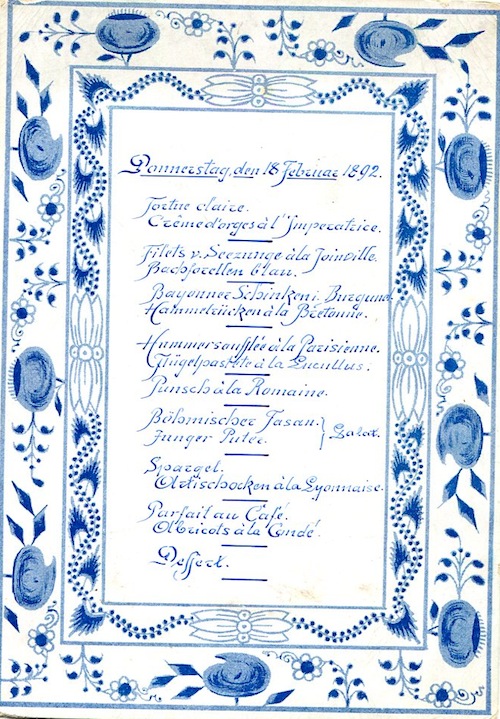 Donnerstag, den 18 Februar 1892.
Tortue claire.
Crême d'orges à l'Imperatrice.
Filets v. Seezunge à la Joinville.
Bachforellen blau.
Bayonner Schinken i. Burgund.
Hammelrücken à la Bretonne.
Hummersoufflée à la Parisienne.
Flügelpastete à la Lucullus.
Punsch à la Romaine.
Böhmischer Fasan. } Salat.
Junger Puter.
Spargel.
Artischocken à la Lyonnaise.
Parfait au Café.
Abricots à la Condé.
Dessert.